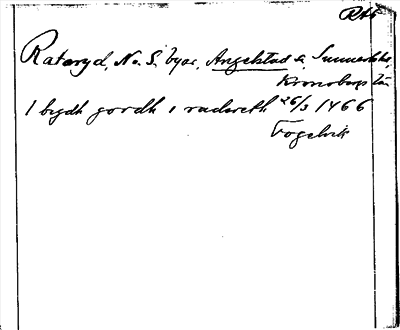 RAÖ
Rataryd, N. o. S. byar, Angelstad s. Sunnerbo hd,
Kronobergs län
1 bygdh gordh i radareth 26/3 1466
Fogelvik